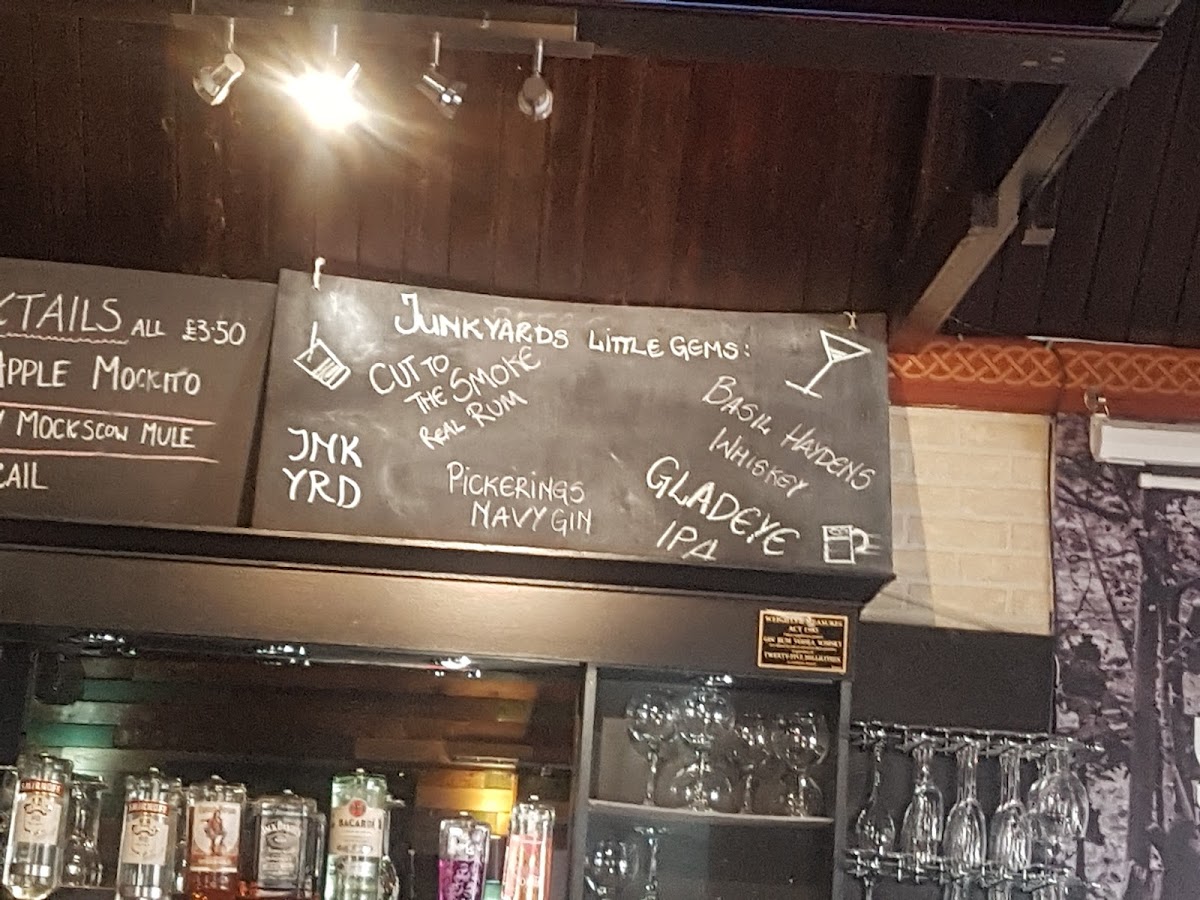 CTAILS ALL £3.50
APPLE MOCKITO
Y MOCKSCOW MULE
CAIL
JUNKYARDS LITTLE GEMS:
CUT TO
THE SMOKE
REAL RUM
JNK
YRD
PICKERINGS
NAVY GIN
BASIL HAYDENS
WHISKEY
GLADEYE
IPA
WEIGHTS MEASURES
ACT 1985
GIN RUM VODKA WHISKY
TWENTY-FIVE MILLILITRES
SMIRNOFF
SMIRNOFF
JACK DANIEL'S
BACARDI